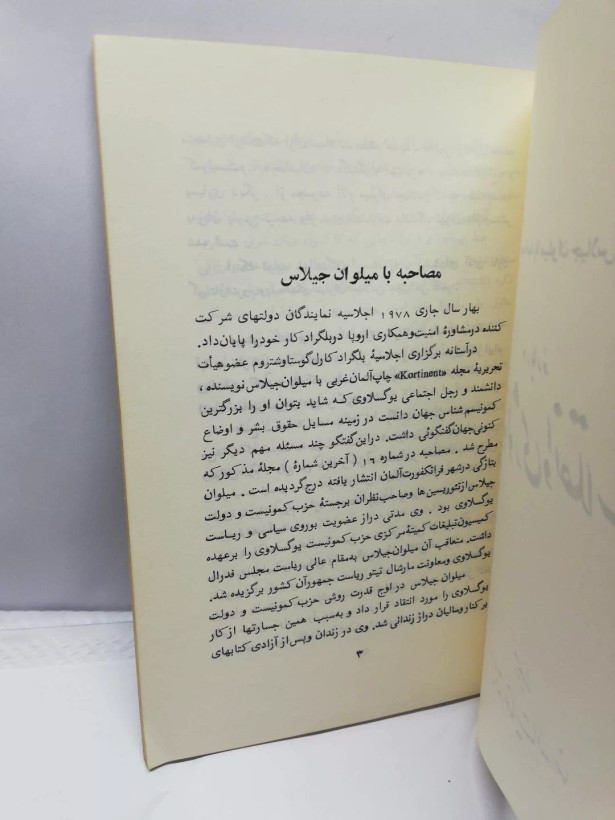 مصاحبه با میلوان جیلاس
بهار سال جاری ۱۹۷۸ اجلاسیه نمایندگان دولتهای شرکت
کننده درمشاورهٔ امنیت‌وهمکاری اروپا دوبلگراد کار خود را پایان‌داد.
درآستانه برگزاری اجلاسیهٔ بلگراد کارل‌گوستاوشتروم عضوهیأت
تحریریهٔ مجله «Kortinent» چاپ‌آلمان‌غربی با میلوان‌جیلاس‌نویسنده ،
دانشمند و رجل اجتماعی یوگسلاوی که شاید بتوان او را بزرگترین
کمونیسم‌شناس جهان دانست در زمینه مسایل حقوق بشر و اوضاع
کنونی‌جهان‌گفتگوئی داشت. دراین‌گفتگو چند مسئله مهم دیگر نیز
مطرح شد . مصاحبه در شماره ۱۶ ( آخرین شمارهٔ ) مجلهٔ مذکور که
بتازگی درشهر فرانکفورت‌آلمان انتشار یافته درج‌گردیده است . میلوان
جیلاس ازتئوریسین‌ها وصاحب‌نظران برجستهٔ حزب کمونیست و دولت
یوگسلاوی بود . وی مدتی دراز عضویت بوروی سیاسی و ریاست
کمیسیون‌تبلیغات کمیتهٔ مرکزی حزب کمونیست یوگسلاوی را برعهده
داشت. متعاقب آن میلوان‌جیلاس به‌مقام عالی ریاست مجلس فدرال
یوگسلاوی ومعاونت مارشال تیتو ریاست جمهورآن کشور برگزیده شد.
میلوان جیلاس در اوج قدرت روش حزب کمونیست و دولت
یوگسلاوی را مورد انتقاد قرار داد و به‌سبب همین جسارتها از کار
برکنار وسالیان دراز زندانی شد. وی در زندان وپس‌از آزادی کتابهای
۳